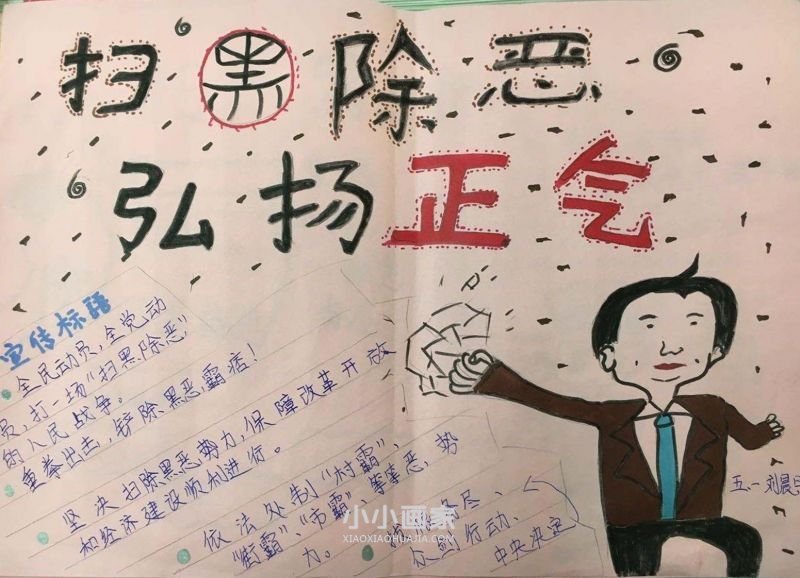 扫黑除恶
弘扬正气
宣传标语
全民动员,全党动
员,打一场"扫黑除恶"
的人民战争。
重拳出击,铲除黑恶霸痞!
坚决扫除黑恶势力,保障改革开放
和经济建设顺利进行。
依法处制"村霸"、
"街霸"、"市霸"等等恶势
力。
行动、
中央决定
五.一刘晨
小小画家
XIAOXIAOHUAJIA.COM